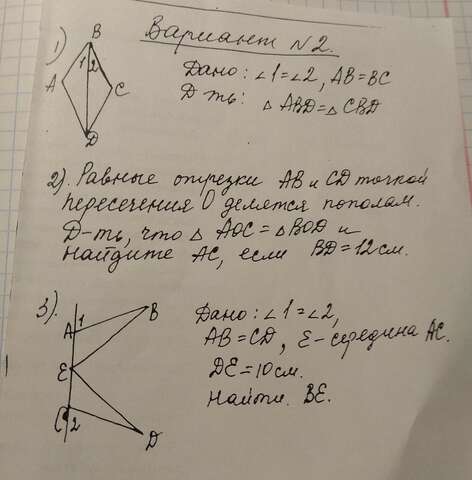 Вариант №2.
1)
B
1 2
A
C
D
Дано: ∠1=∠2, AB=BC
Д-ть: △ABD=△CBD
2). Равные отрезки AB и CD точкой
пересечения O делятся пополам.
Д-ть, что △AOC=△BOD и
найдите AC, если BD=12см.
3).
A 1
B
E
C 2
D
Дано: ∠1=∠2,
AB=CD, E-середина AC.
DE=10см.
Найти BE.